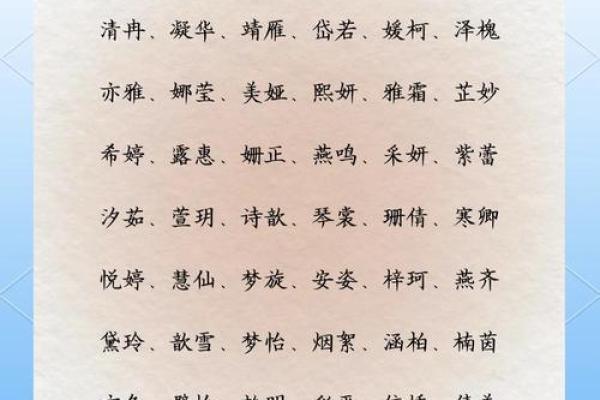 清冉、凝华、靖雁、岱若、媛柯、泽槐
亦雅、娜莹、美娅、熙妍、雅霜、芷妙
希婷、露惠、姗正、燕鸣、采妍、紫蕾
汐茹、萱玥、诗歆、琴裳、珊倩、寒卿
悦婷、慧仙、梦旋、安姿、梓珂、燕齐
黛玲、歆雪、梦怡、烟絮、涵柏、楠茵